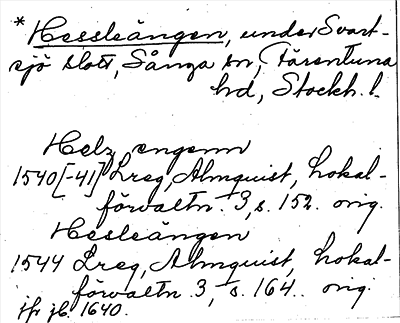 * Hessleängen, under Svart-
sjö slott, Sånga sn, Färentuna
hd, Stockh. l.
Helz engenn
1540[-41] Lreg, Almquist, Lokal-
förvaltn. 3, s. 152. orig.
Hesleängen
1544 Lreg, Almquist, Lokal-
förvaltn. 3, s. 164. orig.
jfr jb. 1640.